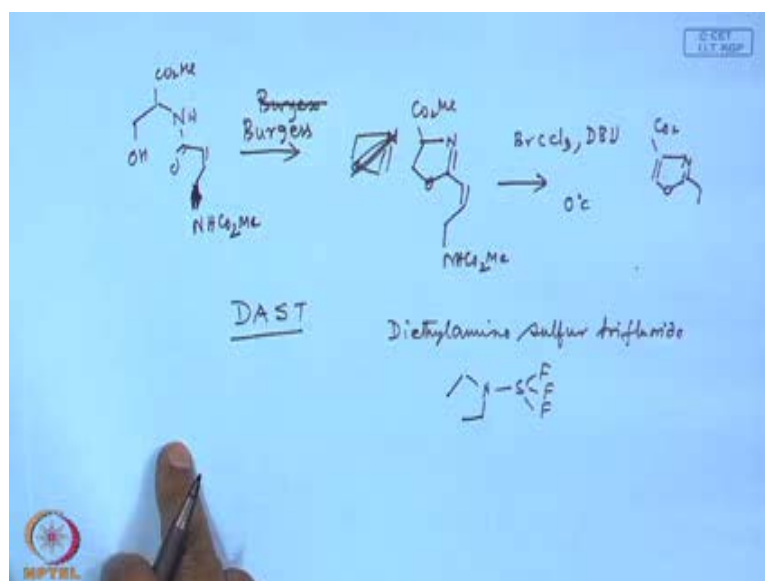 © CET
I.I.T. KGP
CO₂Me
NH
OH
O
NHCO₂Me
Burgess
Burgess
CO₂Me
N
O
NHCO₂Me
BrCCl₃, DBU
0°C
CO₂
N
O
DAST
Diethylamino sulfur trifluoride
N-S
F
F
F
NPTEL